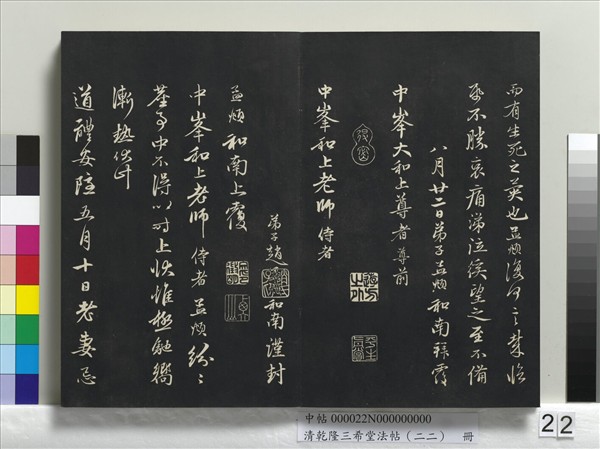 而有生死之莫也孟頫復何言臨
紙不勝哀痛涕泣俟望之至不備
八月廿二日弟子孟頫和南拜覆
中峯大和上尊者尊前
中峯和上老師侍者
弟子趙
和南謹封
孟頫和南上覆
中峯和上老師侍者孟頫
塵事中不得以時上狀惟極馳嚮
漸熱伏惟
道體安隱五月十日老妻忌
中帖 000022N000000000
清乾隆三希堂法帖（二二） 冊
22